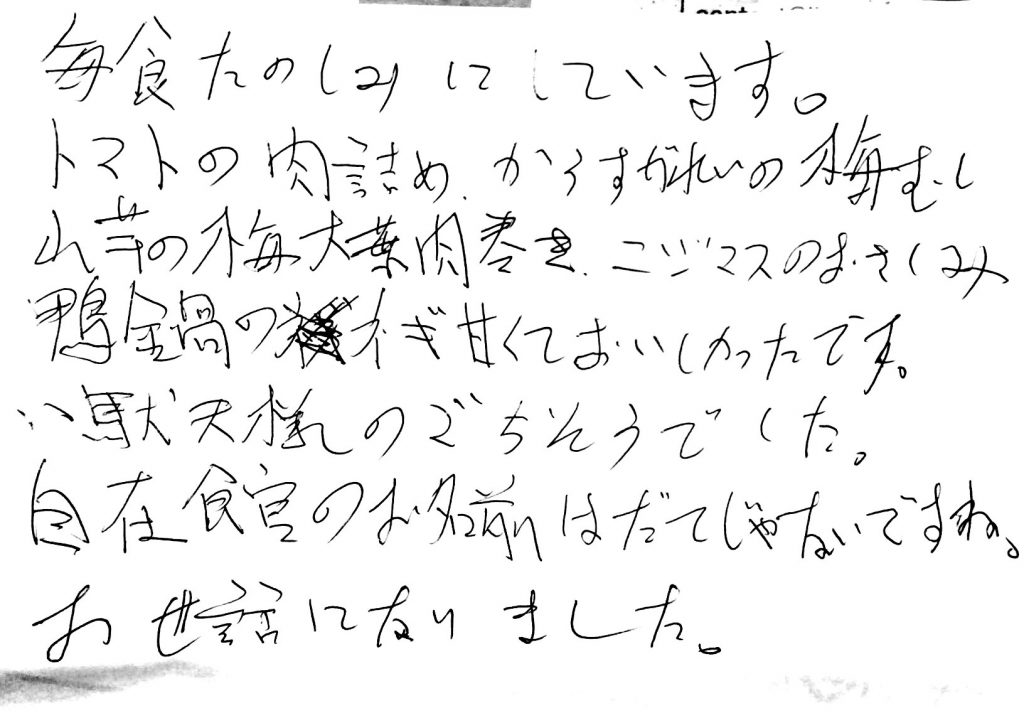 毎食たのしみにしています。
トマトの肉詰め、からすがれいの梅むし
山芋の梅大葉肉巻き、ニジマスのおさしみ
鴨全鍋のネギ甘くておいしかったです。
い駄天様のごちそうでした。
自在食宮のお名前はだてじゃないですね。
お世話になりました。